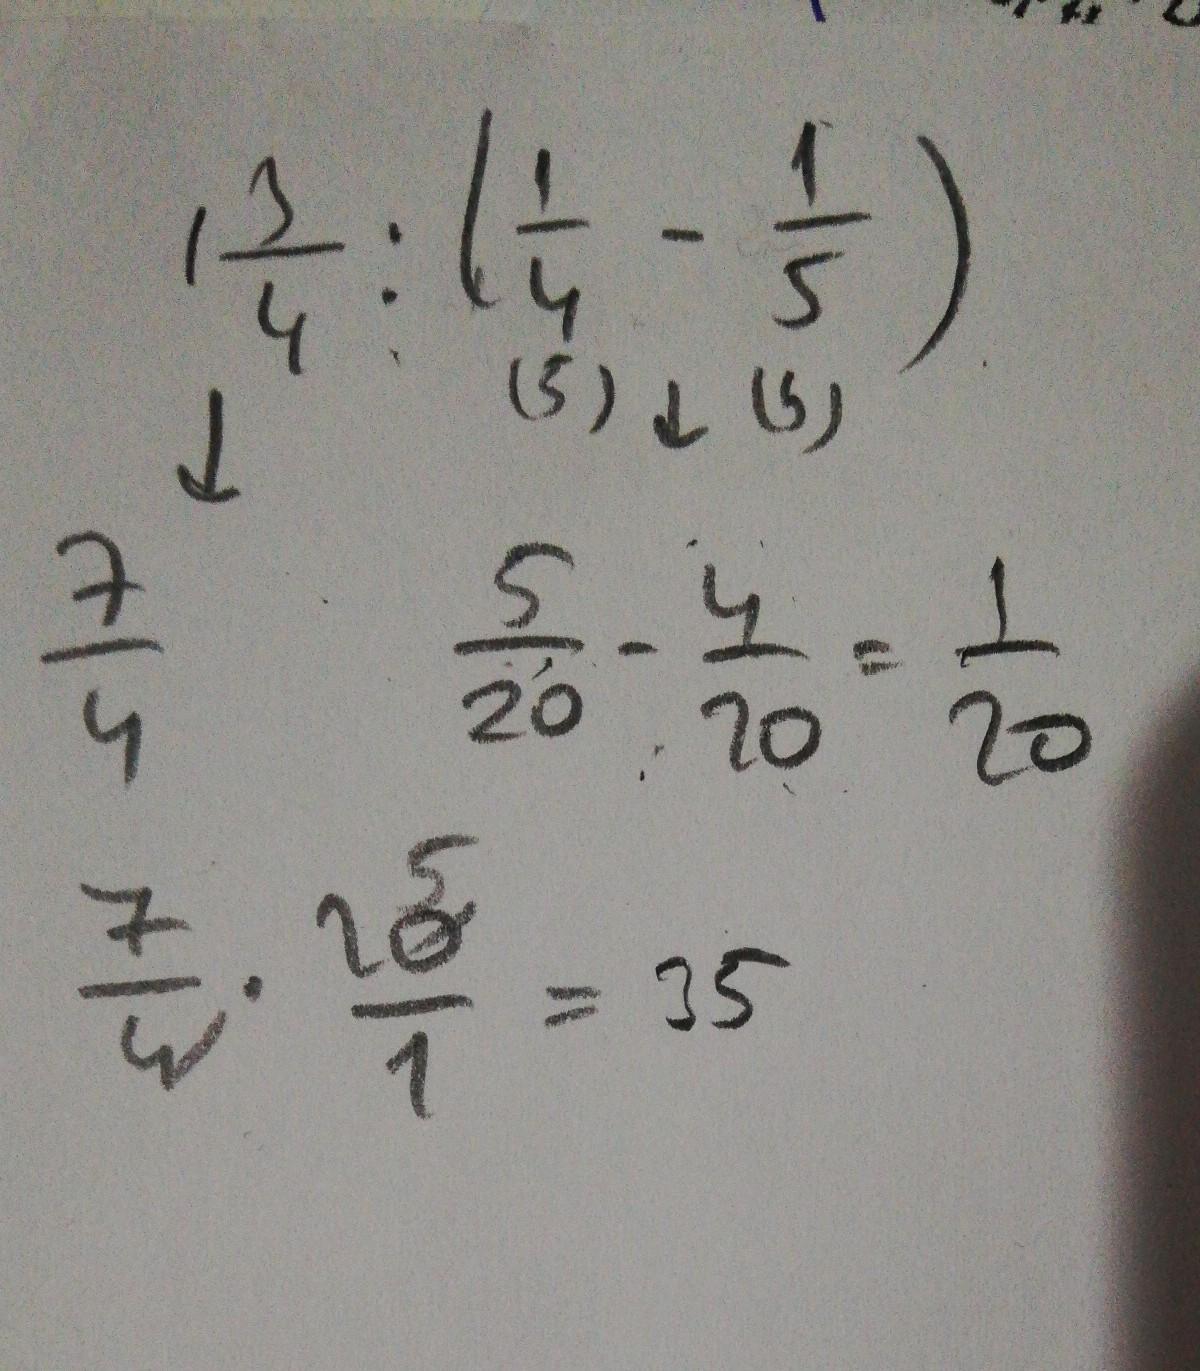 1 3/4 : (1/4 - 1/5)
(5) ↓ (5)
↓
7/4 5/20 - 4/20 = 1/20
5
7/4 · 20/1 = 35